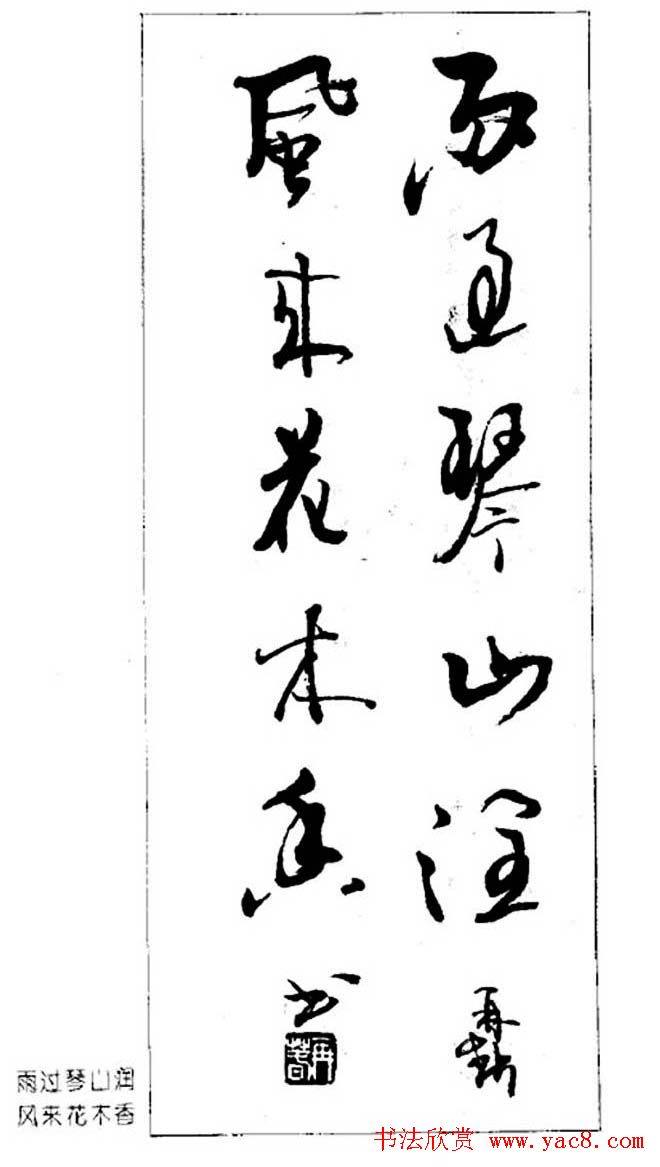 雨过琴山润
風来花木香
书
雨过琴山润
风来花木香
书法欣赏 www.yac8.com